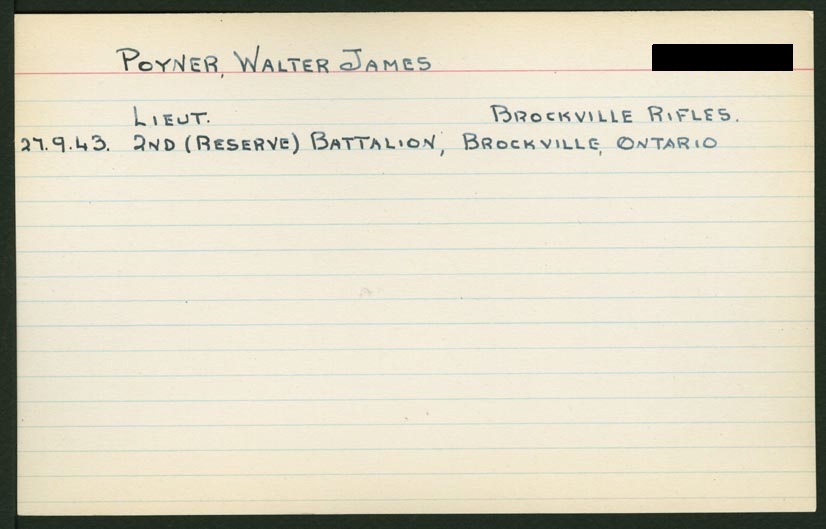 POYNER, WALTER JAMES
LIEUT. BROCKVILLE RIFLES.
27.9.43. 2ND (RESERVE) BATTALION, BROCKVILLE, ONTARIO